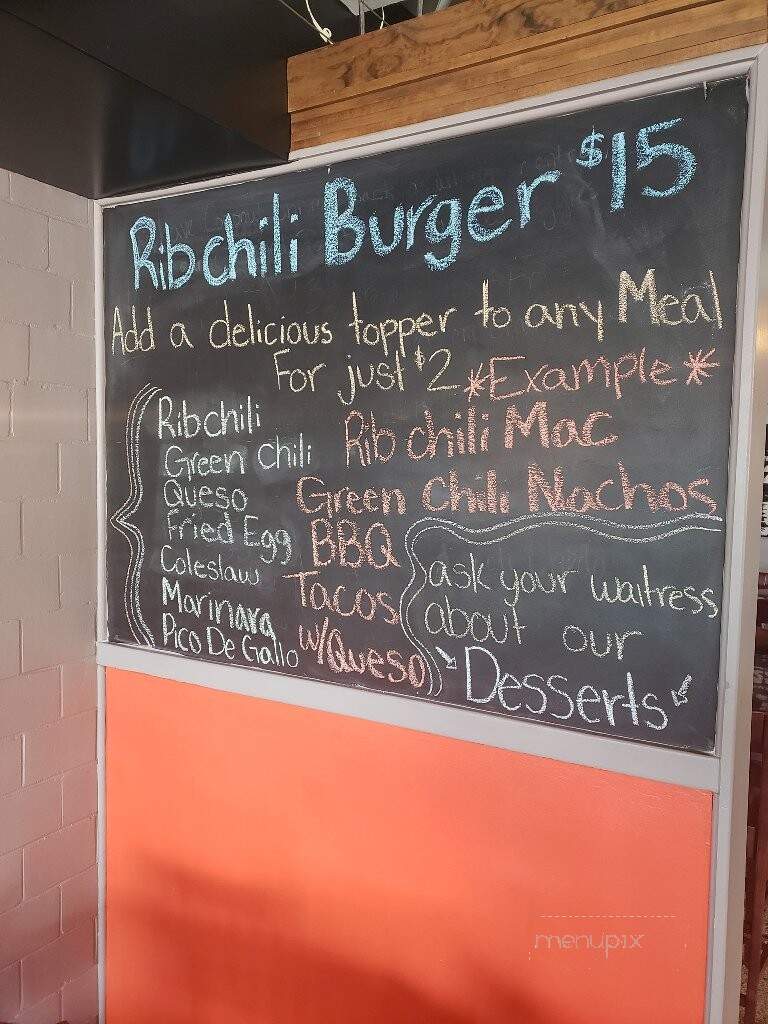 Ribchili Burger $15
Add a delicious topper to any Meal
For just $2
*Example*
Ribchili
Green chili
Queso
Fried Egg
Coleslaw
Marinara
Pico De Gallo
Rib chili Mac
Green Chili Nachos
BBQ
Tacos
w/Queso
ask your waitress
about our
Desserts
menupix